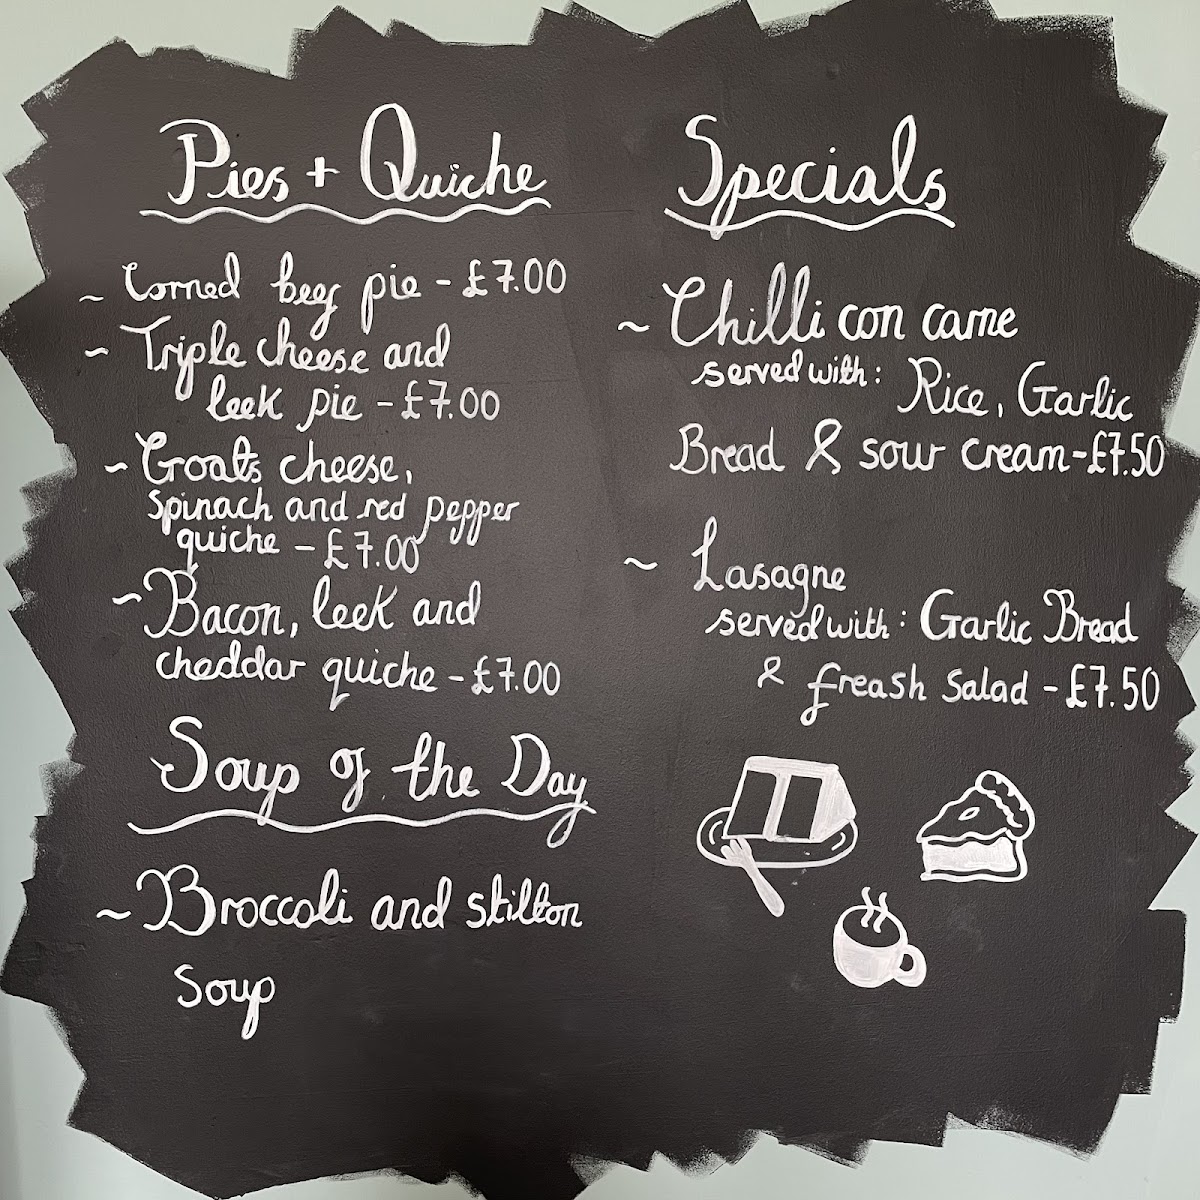 Pies + Quiche
~ Corned beef pie - £7.00
~ Triple cheese and
leek pie - £7.00
~ Goats cheese,
spinach and red pepper
quiche - £7.00
~ Bacon, leek and
cheddar quiche - £7.00
Soup of the Day
~ Broccoli and stilton
soup
Specials
~ Chilli con carne
served with: Rice, Garlic
Bread & sour cream - £7.50
~ Lasagne
served with: Garlic Bread
& freash salad - £7.50